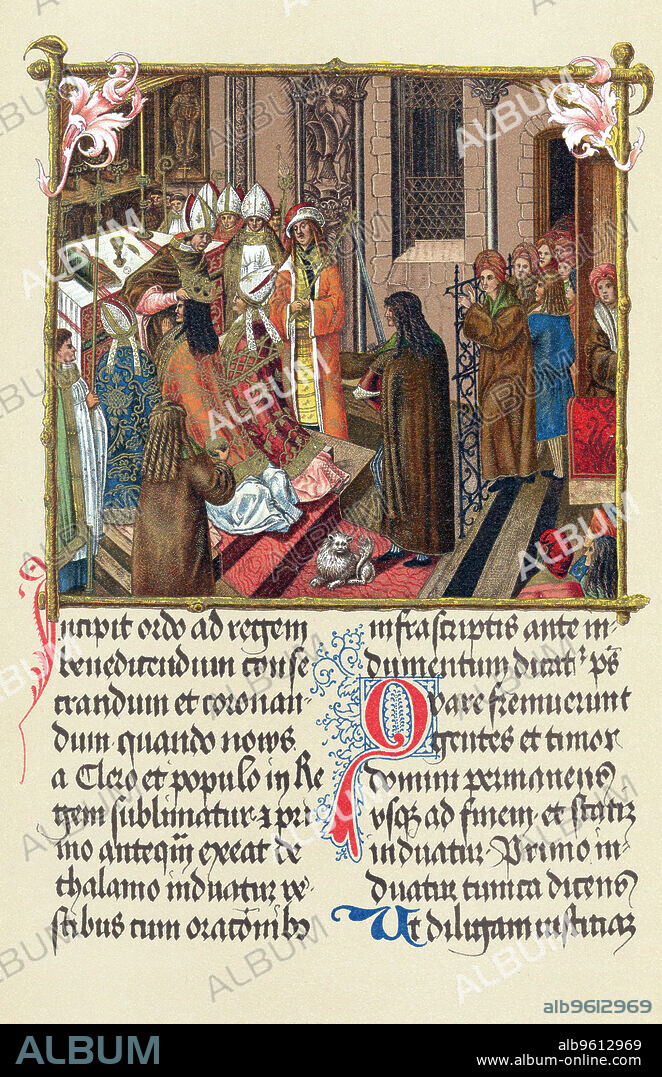 Incipit ordo ad regem
benedicendum conse
crandum et coronan-
dum quando novus
a Clero et populo in Re
gem sublimatur. et pri
mo anteqm̄ exeat de
thalamo induatur ve-
stibus cum orac̄onibꝫ
infrascriptis ante in-
dumentum dicat. ps̄
Quare fremuerunt
gentes et timor
domini permanens
vsqꝫ ad finem et statiꝫ
induatur. Primo in-
duatur tunica dicens
Ut diligam iusticiaꝫ
alb9612969
ALBUM
alb9612969
www.album-online.com